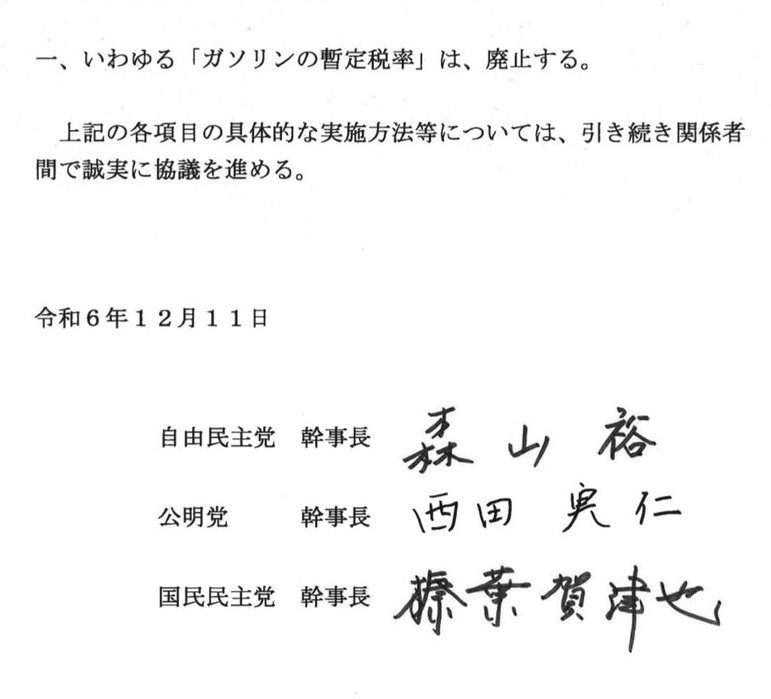 一、いわゆる「ガソリンの暫定税率」は、廃止する。
上記の各項目の具体的な実施方法等については、引き続き関係者
間で誠実に協議を進める。
令和６年１２月１１日
自由民主党　幹事長　森山　裕
公明党　　　幹事長　西田　実仁
国民民主党　幹事長　榛葉賀津也